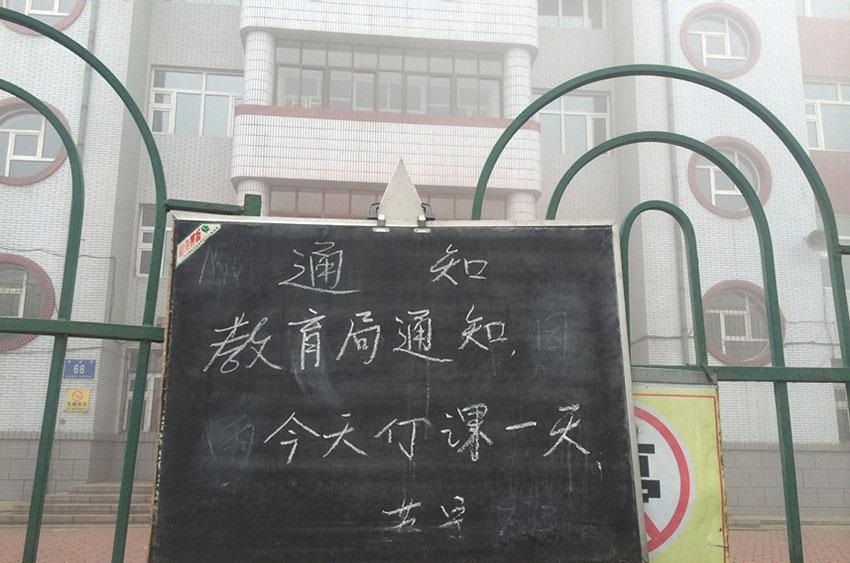 通 知
教育局通知,
今天仃课一天,
68